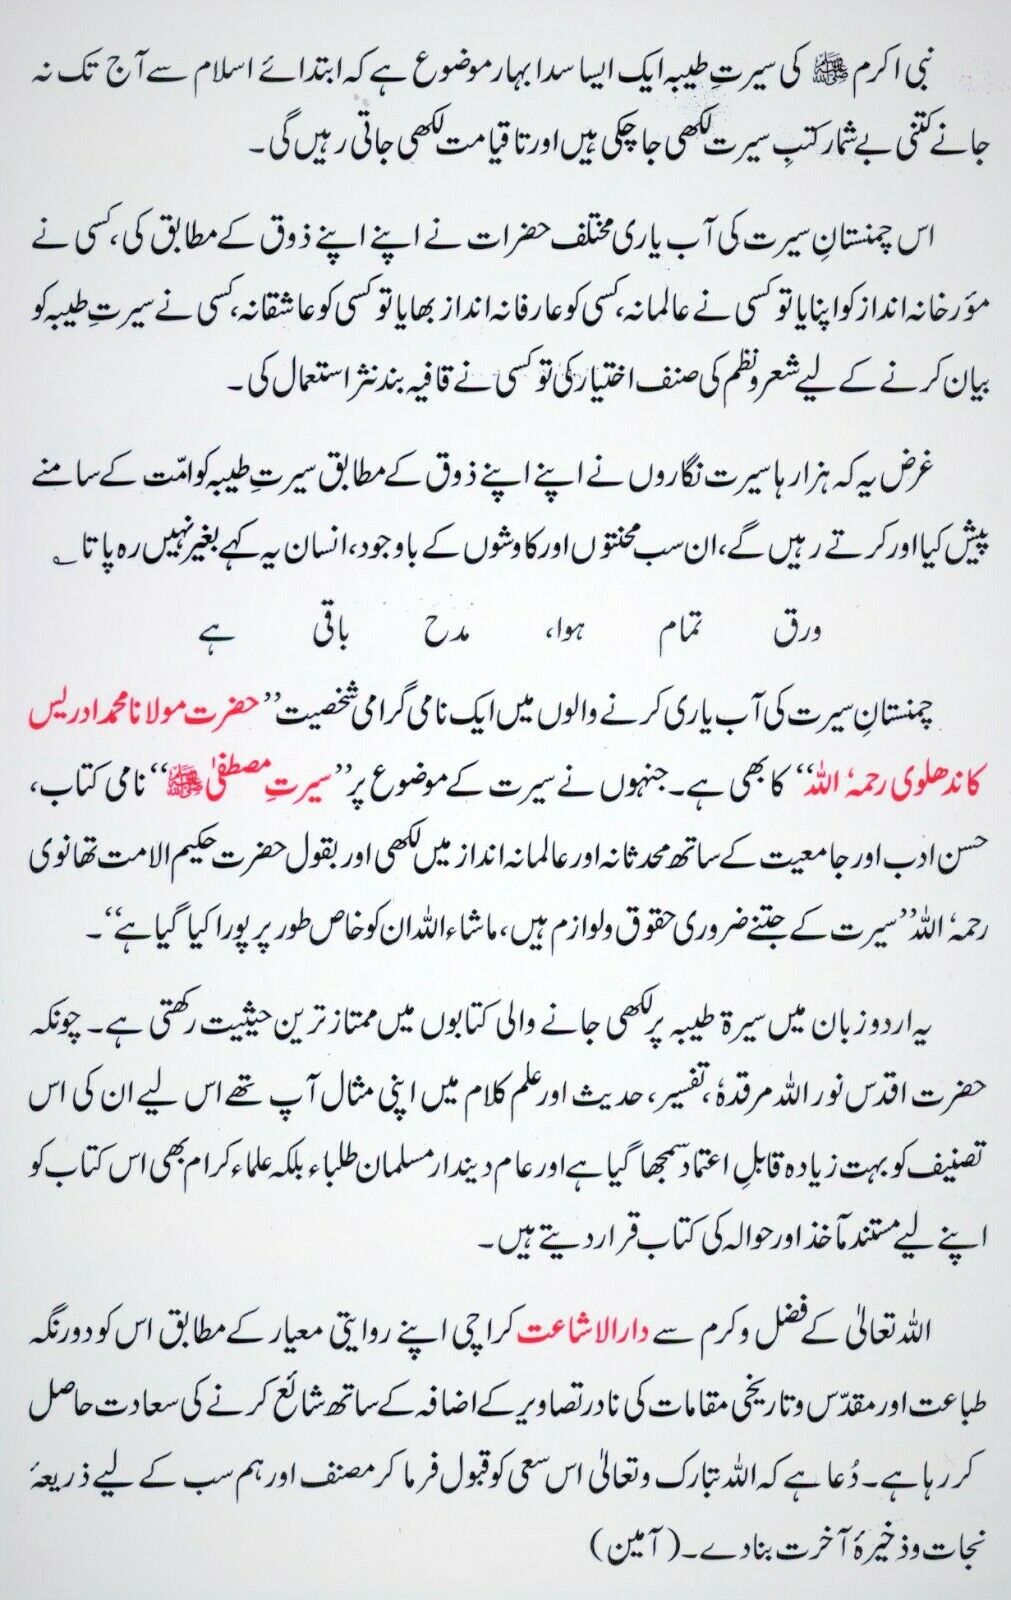 نبی اکرم ﷺ کی سیرتِ طیبہ ایک ایسا سدا بہار موضوع ہے کہ ابتدائے اسلام سے آج تک نہ
جانے کتنی بے شمار کتبِ سیرت لکھی جا چکی ہیں اور تا قیامت لکھی جاتی رہیں گی۔
اس چمنستانِ سیرت کی آب یاری مختلف حضرات نے اپنے اپنے ذوق کے مطابق کی، کسی نے
مؤرخانہ انداز کو اپنایا تو کسی نے عالمانہ، کسی کو عارفانہ انداز بھایا تو کسی کو عاشقانہ، کسی نے سیرتِ طیبہ کو
بیان کرنے کے لیے شعر و نظم کی صنف اختیار کی تو کسی نے قافیہ بند نثر استعمال کی۔
غرض یہ کہ ہزارہا سیرت نگاروں نے اپنے اپنے ذوق کے مطابق سیرتِ طیبہ کو امّت کے سامنے
پیش کیا اور کرتے رہیں گے، ان سب محنتوں اور کاوشوں کے باوجود، انسان یہ کہے بغیر نہیں رہ پاتا ؎
ورق تمام ہوا، مدح باقی ہے
چمنستانِ سیرت کی آب یاری کرنے والوں میں ایک نامی گرامی شخصیت ’’حضرت مولانا محمد ادریس
کاندھلوی رحمہٗ اللہ‘‘ کا بھی ہے۔ جنہوں نے سیرت کے موضوع پر ’’سیرتِ مصطفیٰ ﷺ‘‘ نامی کتاب،
حسن ادب اور جامعیت کے ساتھ محدثانہ اور عالمانہ انداز میں لکھی اور بقول حضرت حکیم الامت تھانوی
رحمہٗ اللہ ’’سیرت کے جتنے ضروری حقوق و لوازم ہیں، ماشاء اللہ ان کو خاص طور پر پورا کیا گیا ہے‘‘۔
یہ اردو زبان میں سیرۃ طیبہ پر لکھی جانے والی کتابوں میں ممتاز ترین حیثیت رکھتی ہے۔ چونکہ
حضرت اقدس نور اللہ مرقدہٗ، تفسیر، حدیث اور علم کلام میں اپنی مثال آپ تھے اس لیے ان کی اس
تصنیف کو بہت زیادہ قابلِ اعتماد سمجھا گیا ہے اور عام دیندار مسلمان طلباء بلکہ علماء کرام بھی اس کتاب کو
اپنے لیے مستند مآخذ اور حوالہ کی کتاب قرار دیتے ہیں۔
اللہ تعالیٰ کے فضل و کرم سے دارالاشاعت کراچی اپنے روایتی معیار کے مطابق اس کو دو رنگہ
طباعت اور مقدّس و تاریخی مقامات کی نادر تصاویر کے اضافہ کے ساتھ شائع کرنے کی سعادت حاصل
کر رہا ہے۔ دُعا ہے کہ اللہ تبارک و تعالیٰ اس سعی کو قبول فرما کر مصنف اور ہم سب کے لیے ذریعۂ
نجات و ذخیرۂ آخرت بنا دے۔ (آمین)